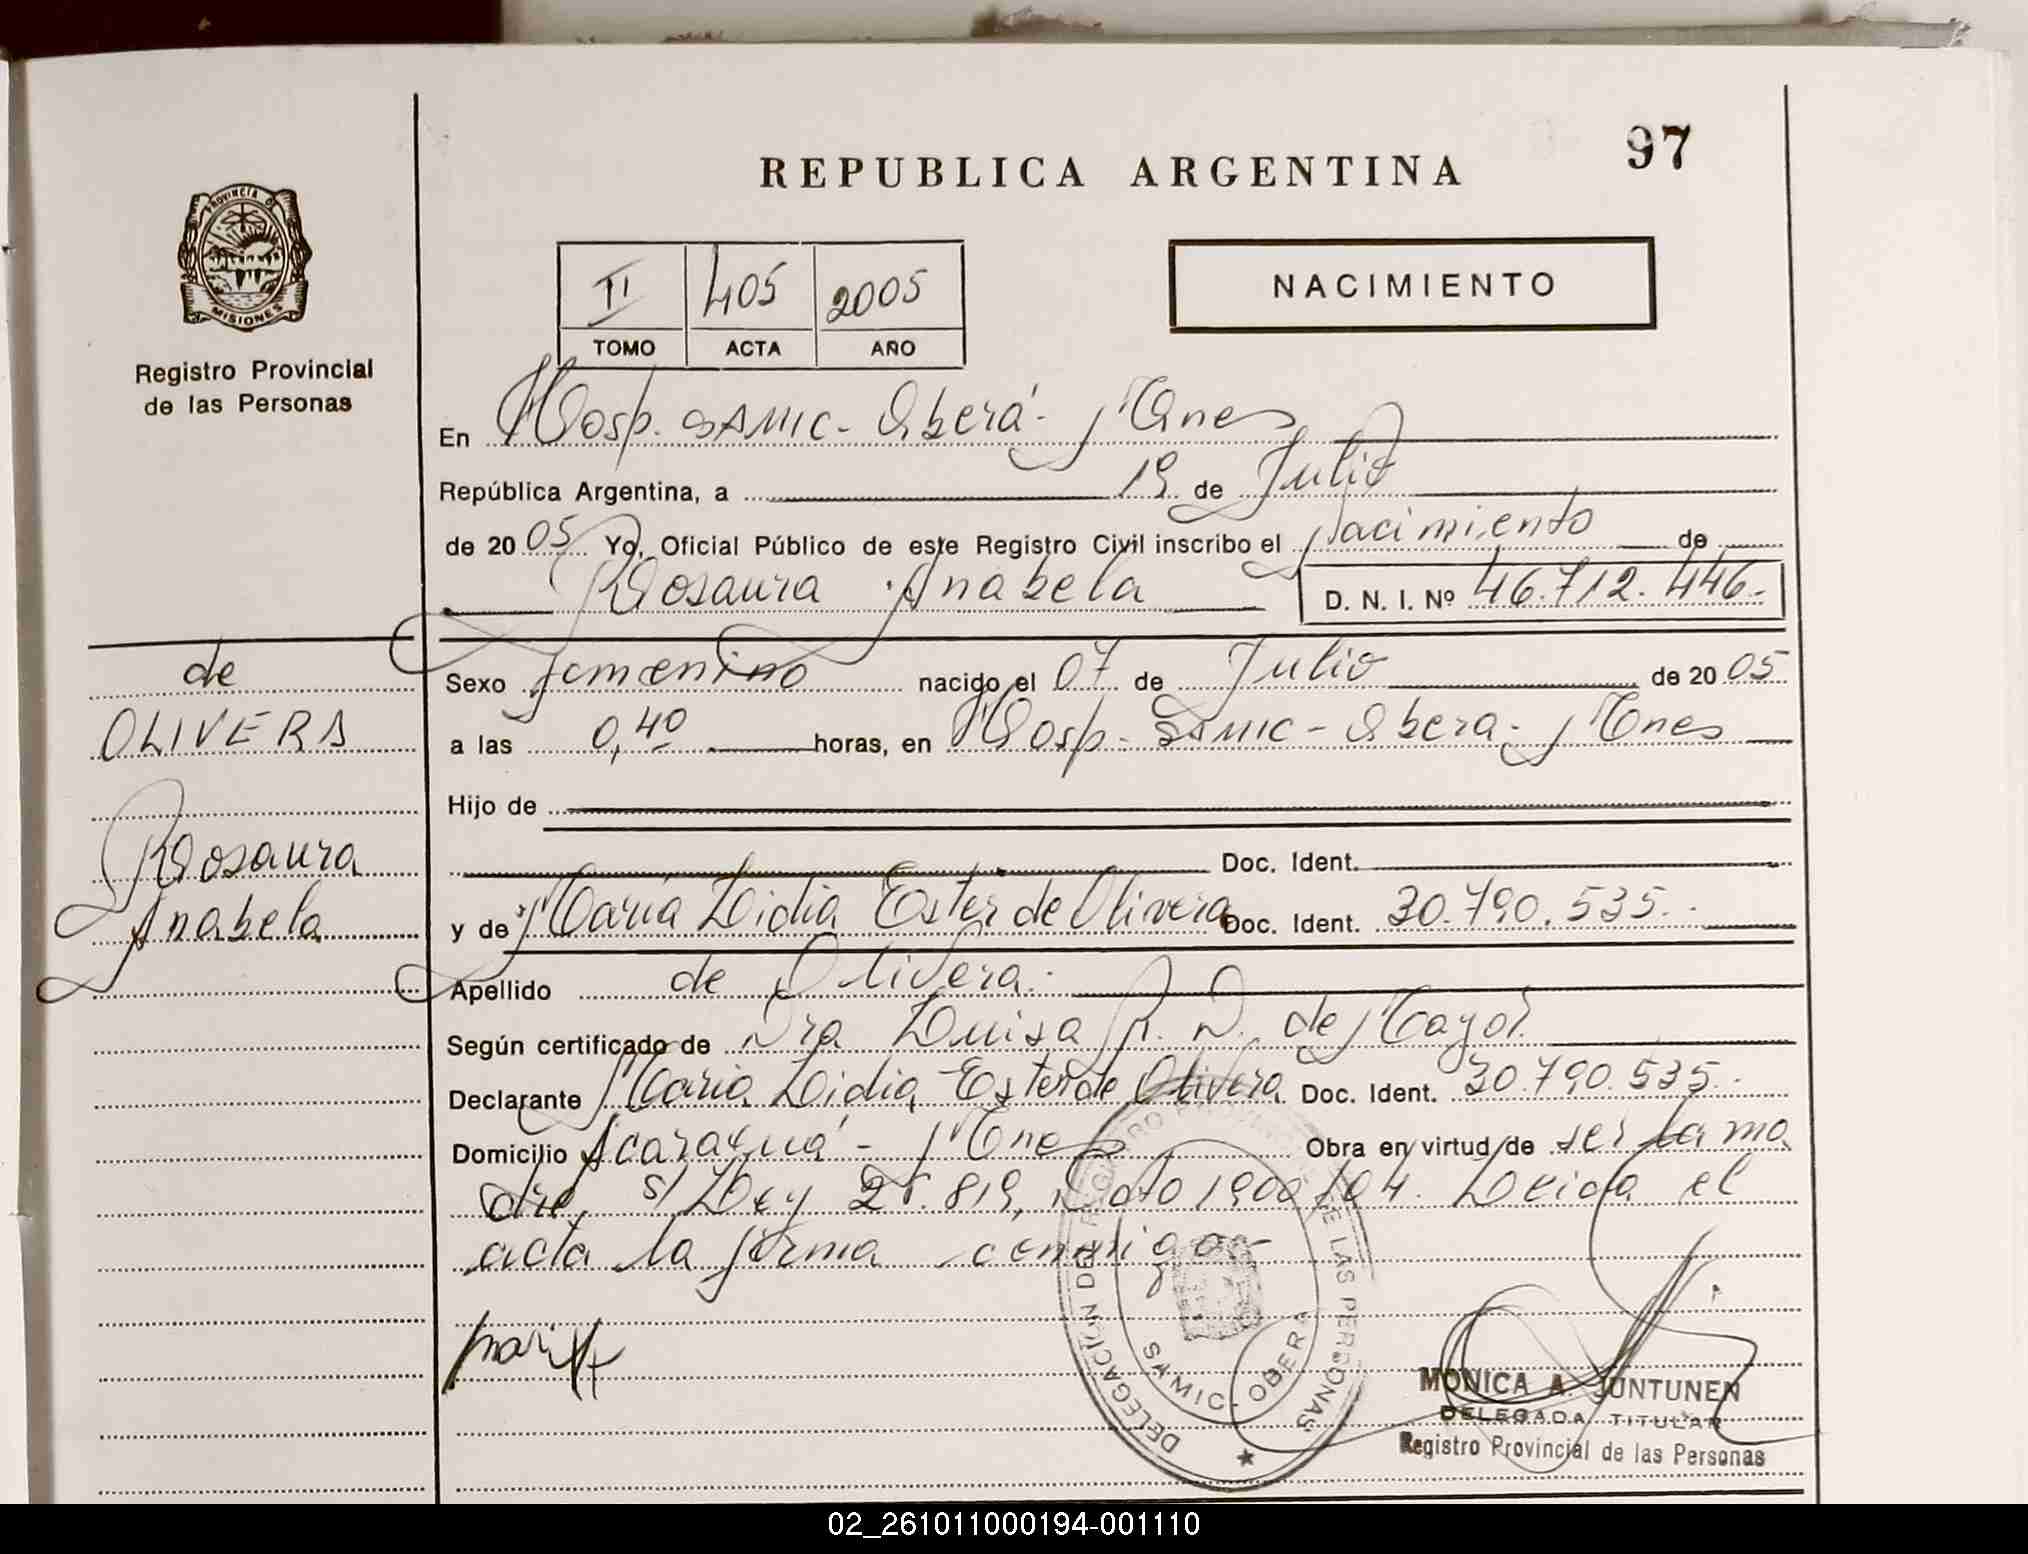 97
REPUBLICA ARGENTINA
PROVINCIA DE
MISIONES
Registro Provincial
de las Personas
II 405 2005
TOMO ACTA AÑO
NACIMIENTO
En Hosp. SAMIC - Oberá - Mnes
República Argentina, a 19 de Julio
de 2005 Yo, Oficial Público de este Registro Civil inscribo el Nacimiento de
Rosaura Anabela D. N. I. Nº 46.712.446.-
de
OLIVERA
Rosaura
Anabela
Sexo femenino nacido el 07 de Julio de 2005
a las 0,40 horas, en Hosp. SAMIC - Oberá - Mnes
Hijo de
Doc. Ident.
y de María Lidia Ester de Olivera Doc. Ident. 30.790.535.-
Apellido de Olivera.
Según certificado de Dra Luisa R. D. de Mayol
Declarante María Lidia Ester de Olivera Doc. Ident. 30.790.535.-
Domicilio Acaraguá - Mnes Obra en virtud de ser la ma
dre, s/ Ley 25.819, Dcto 1900/04. Leída el
acta la firma conmigo-
DELEGACIÓN DEL REGISTRO PROVINCIAL DE LAS PERSONAS
SAMIC - OBERA
MONICA A. JUNTUNEN
DELEGADA TITULAR
Registro Provincial de las Personas
02_261011000194-001110